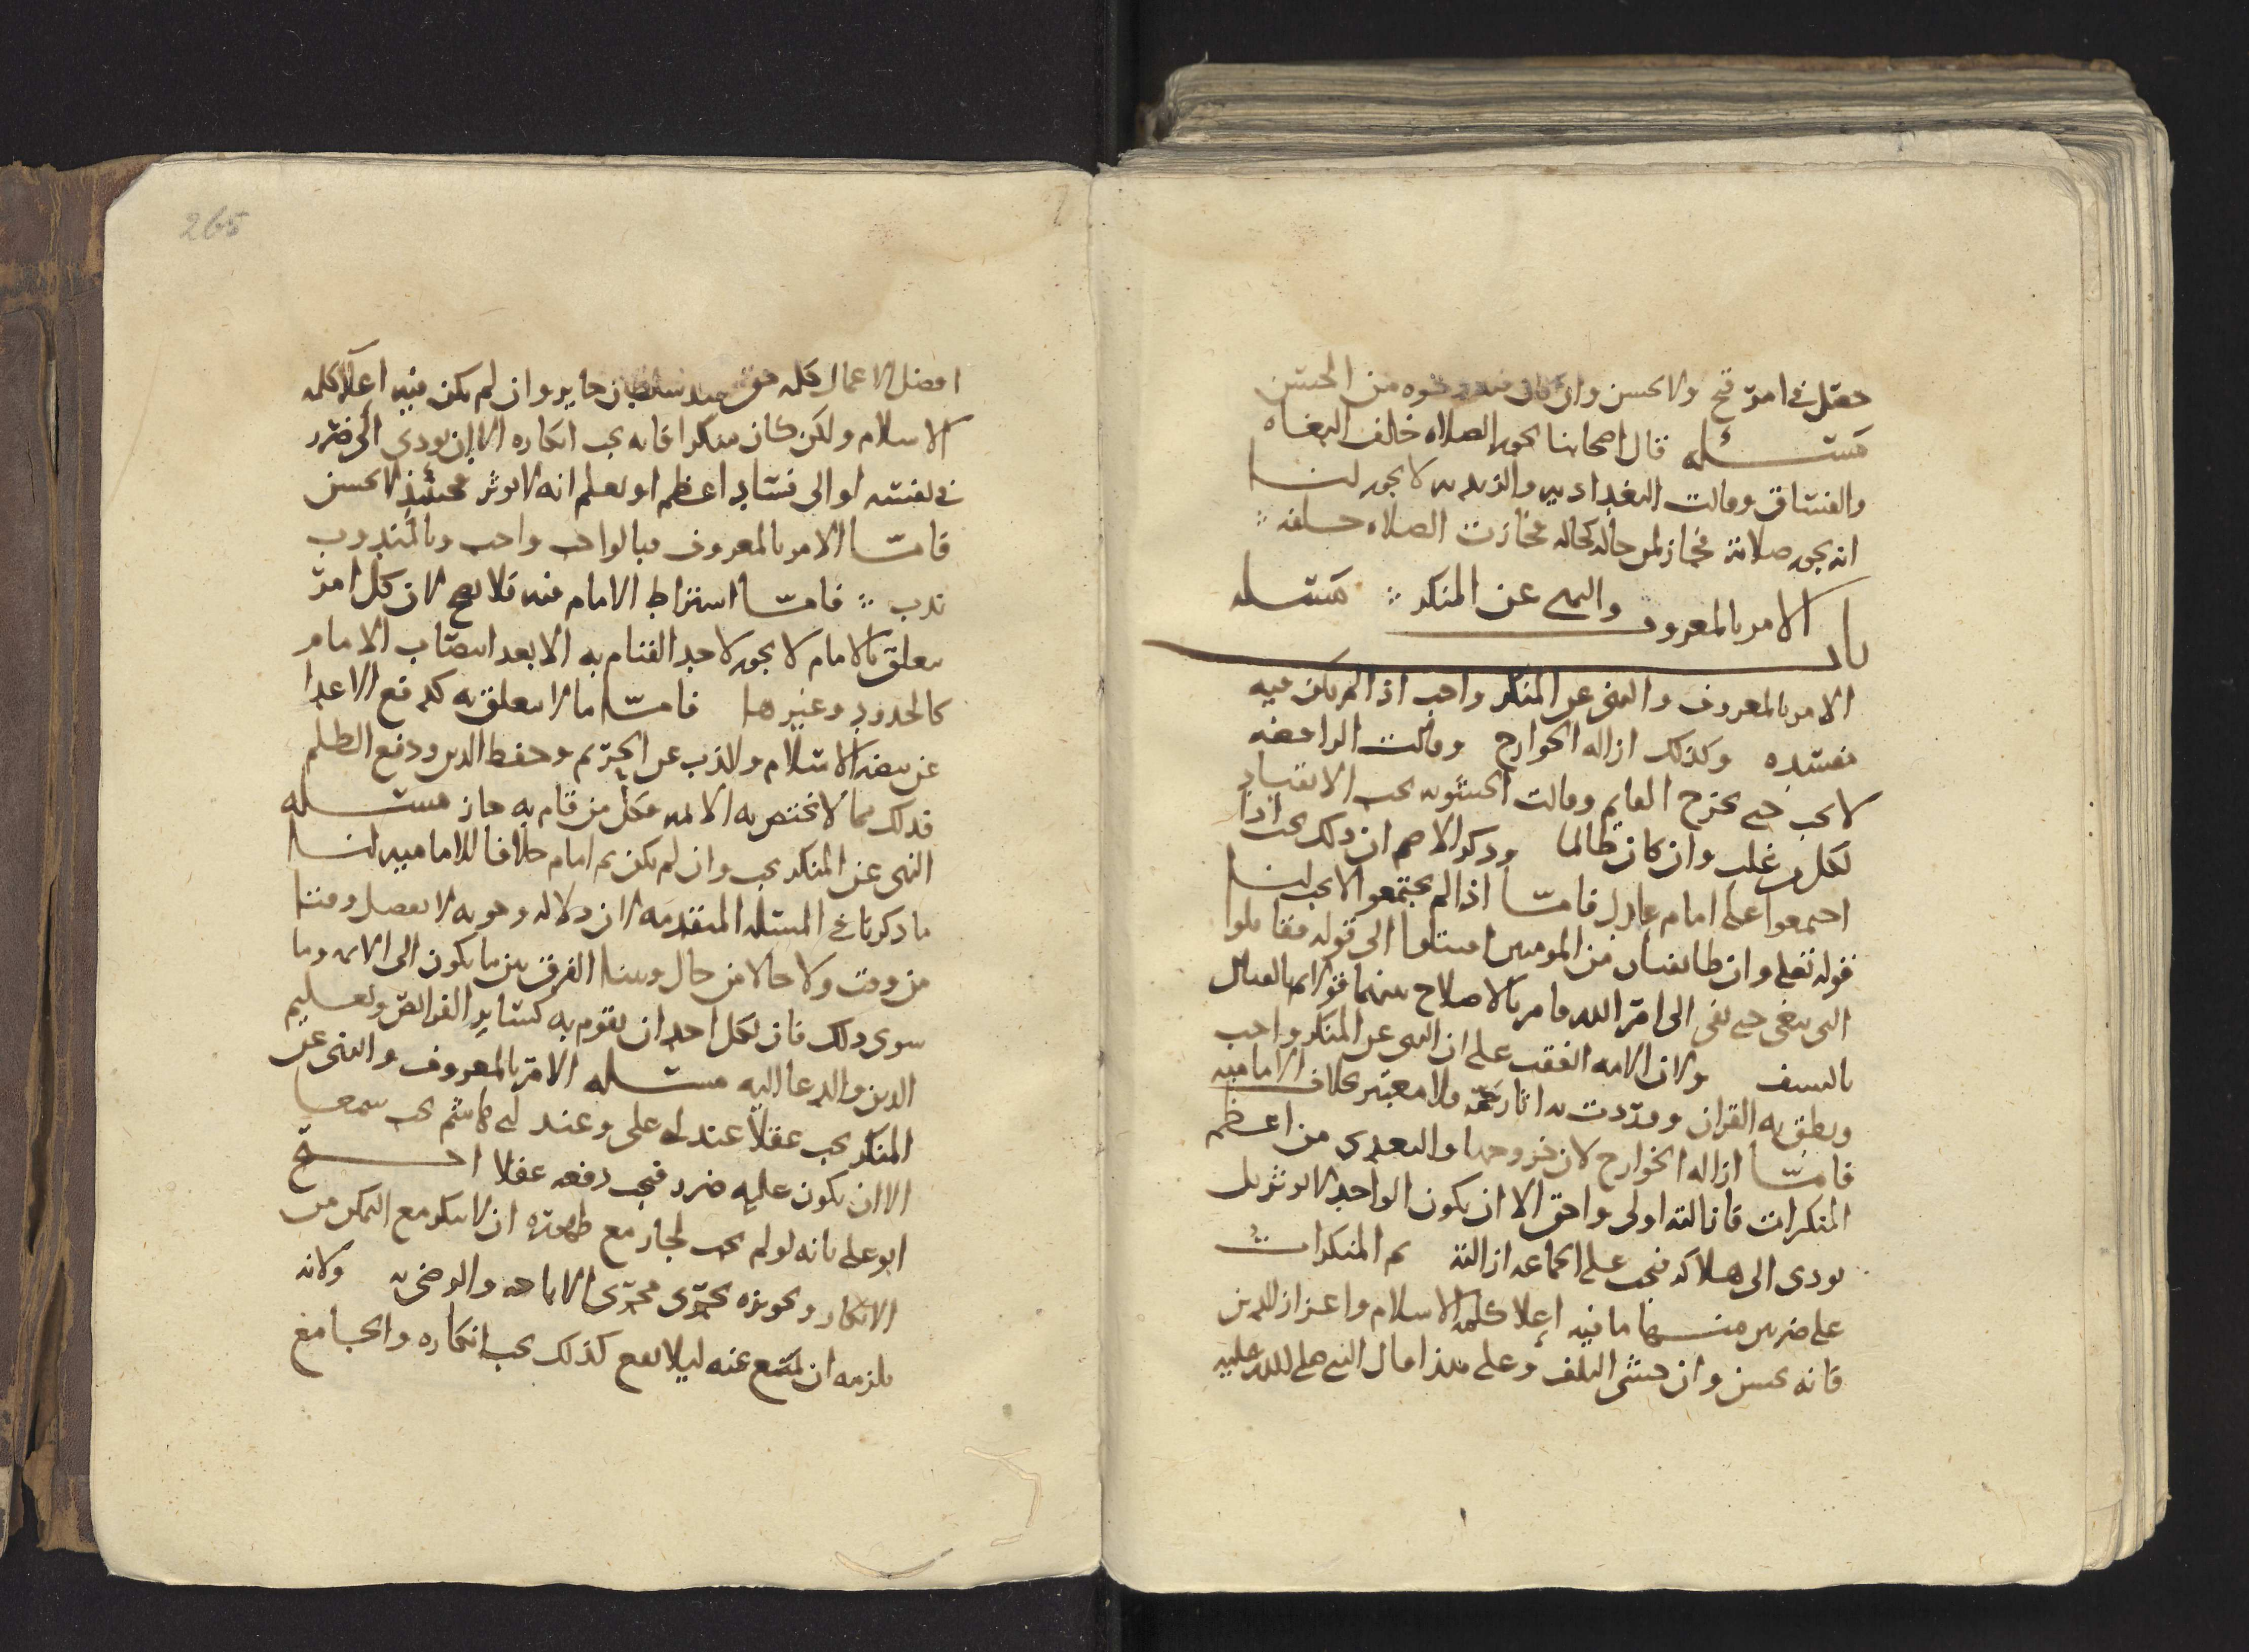 حصل في امر قبح ولا يحسن وان كان فيه وجوه من الحسن
مسئله قال اصحابنا يجوز الصلاه خلف البغاه
والفساق وقالت البغداديه والزيديه لا يجوز لنا
انه يجوز صلاته فجاز لمن حاله كحاله فجازت الصلاه خلفه
باب الامر بالمعروف والنهي عن المنكر مسئله
الامر بالمعروف والنهى عن المنكر واجب اذا لم يكن فيه
مفسده وكذلك ازاله الخوارج وقالت الرافضه
لا يجب حتى يخرج القايم وقالت الحشويه يجب الانقياد
لكل من غلب وان كان ظالما وذكر الاصم ان ذلك يجب اذا
اجتمعوا على امام عادل فامـا اذا لم يجتمعوا لا يجب لنا
قوله تعلى وان طائفتان من المومنين اقتتلوا الى قوله فقاتلوا
التى تبغى حتى تفى الى امر الله فامر بالاصلاح بينهما ثم القتال
بالسيف ولان الامه اتفقت على ان النهى عن المنكر واجب
ونطق به القران ووردت به اثار جمه ولا معتبر بخلاف الاماميه
فامـا ازاله الخوارج لان خروجها والتعدى من اعظم
المنكرات فازالته اولى واحق الا ان يكون الواحد لا يوثر بل
يودى الى هلاكه فيجب على الجماعه ازالته ثم المنكرات
على ضربين منها ما فيه إعلا كلمه الاسلام واعزاز الدين
فانه يحسن وان خشى التلف وعلى هذا قال النبي صلى الله عليه
265
افضل الاعمال كلمه حق عند سلطان جاير وان لم يكن فيه اعلا كلمه
الاسلام ولكن كان منكرا فانه يجب انكاره الا ان يودي الى ضرر
في نفسه او الى فساد اعظم او يعلم انه لا يوثر فحينئذ لا يحسن
فامـا الامر بالمعروف فبالواجب واجب وبالمندوب
ندب فامـا اشتراط الامام فيه فلا يصح لان كل امر
يتعلق بالامام لا يجوز لاحد القيام به الا بعد انتصاب الامام
كالحدود وغيرها فامـا ما لا يتعلق به كدفع الاعدا
عن بيضه الاسلام والذب عن الحريم وحفظ الدين ودفع الظلم
فذلك مما لا يختص به الائمه فكل من قام به جاز مسئله
النهى عن المنكر يجب وان لم يكن ثم امام خلافا للاماميه لنا
ما ذكرنا في المسئله المتقدمه لان دلاله وجوبه لا يفصل وقتا
من وقت ولا حالا من حال وبينا الفرق بين ما يكون الى الائمه وما
سوى ذلك فان لكل احد ان يقوم به كساير الفرائض وتعليم
الدين والدعا اليه مسئله الامر بالمعروف والنهى عن
المنكر يجب عقلا عند ابى على وعند ابى هاشم يجب سمعا
الا ان يكون عليه ضرر فيجب دفعه عقلا احتج
ابو على بانه لو لم يجب لجاز مع ظهوره ان لا ينكر مع التمكن من
الانكار وتجويزه يجرى مجرى الاباحه والرضى به ولانه
يلزمه ان يمتنع عنه ليلا يقع كذلك يجب انكاره والجامع